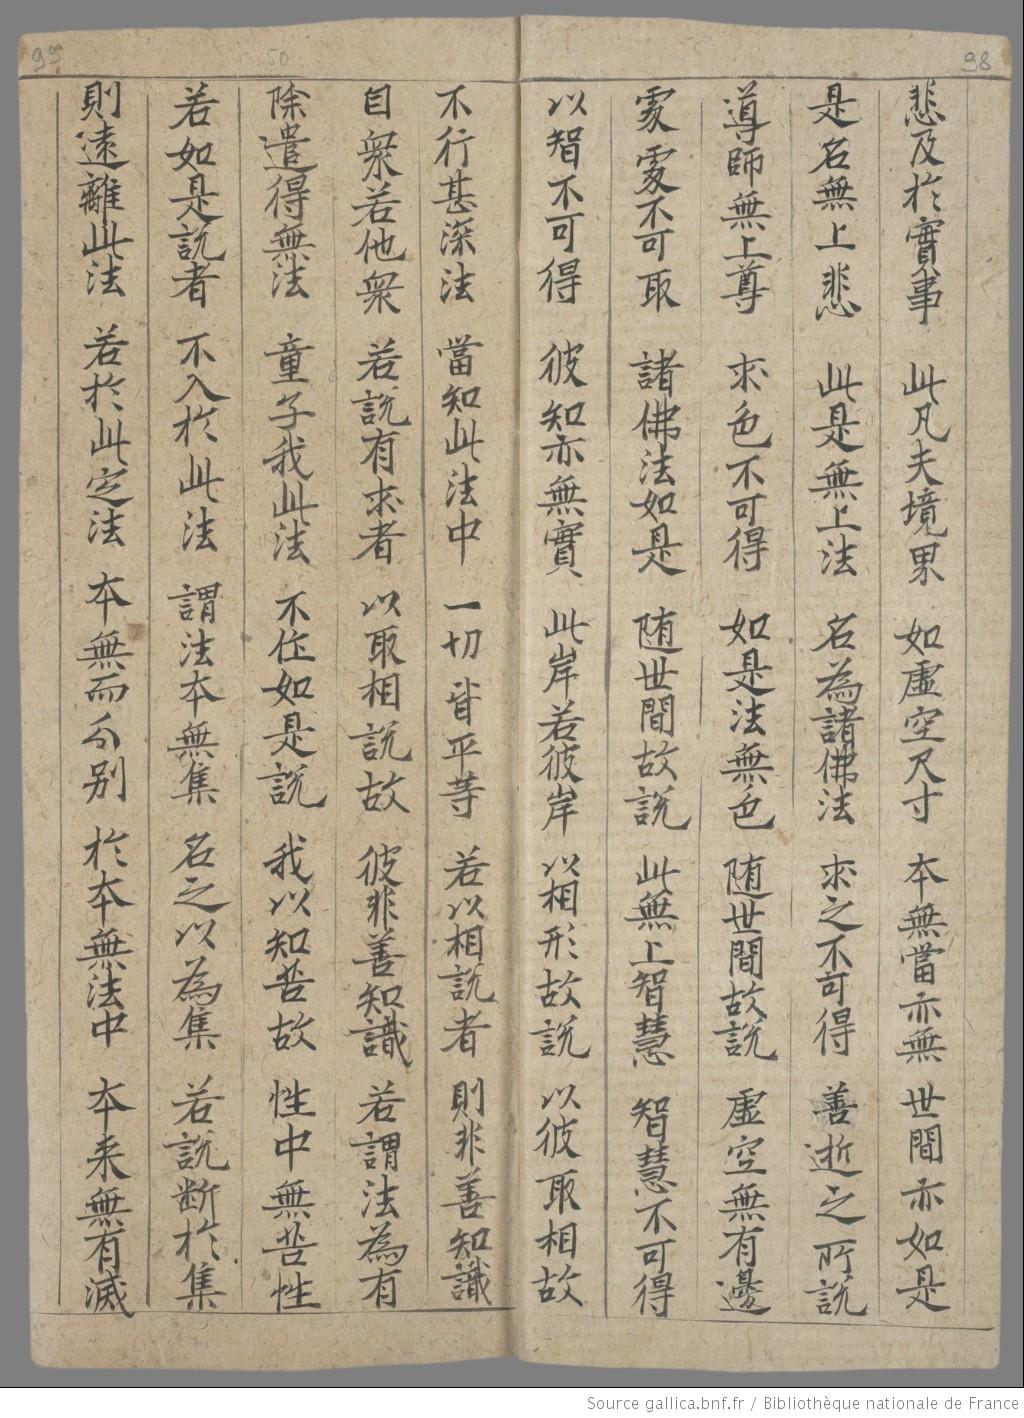 98
悲及於實事 此凡夫境界 如虛空尺寸 本無當亦無 世間亦如是
是名無上悲 此是無上法 名為諸佛法 求之不可得 善逝之所說
導師無上尊 求色不可得 如是法無色 随世間故說 虛空無有邊
處處不可取 諸佛法如是 随世間故說 此無上智慧 智慧不可得
以智不可得 彼知亦無實 此岸若彼岸 以相形故說 以彼取相故
99
50
不行甚深法 當知此法中 一切皆平等 若以相說者 則非善知識
自衆若他衆 若說有求者 以取相說故 彼非善知識 若謂法為有
除遣得無法 童子我此法 不作如是說 我以知苦故 性中無苦性
若如是說者 不入於此法 謂法本無集 名之以為集 若說断於集
則遠離此法 若於此定法 本無而分別 於本無法中 本来無有滅
Source gallica.bnf.fr / Bibliothèque nationale de France